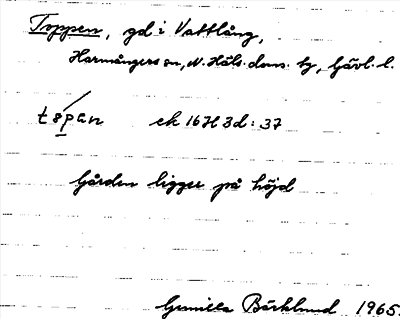 Toppen, gd i Vattlång,
Harmångers sn, N. Häls. doms. hg, Gävl. l.
tǿpan ek 16H 3d: 37
Gården ligger på höjd
Gunilla Bärklund 1965.